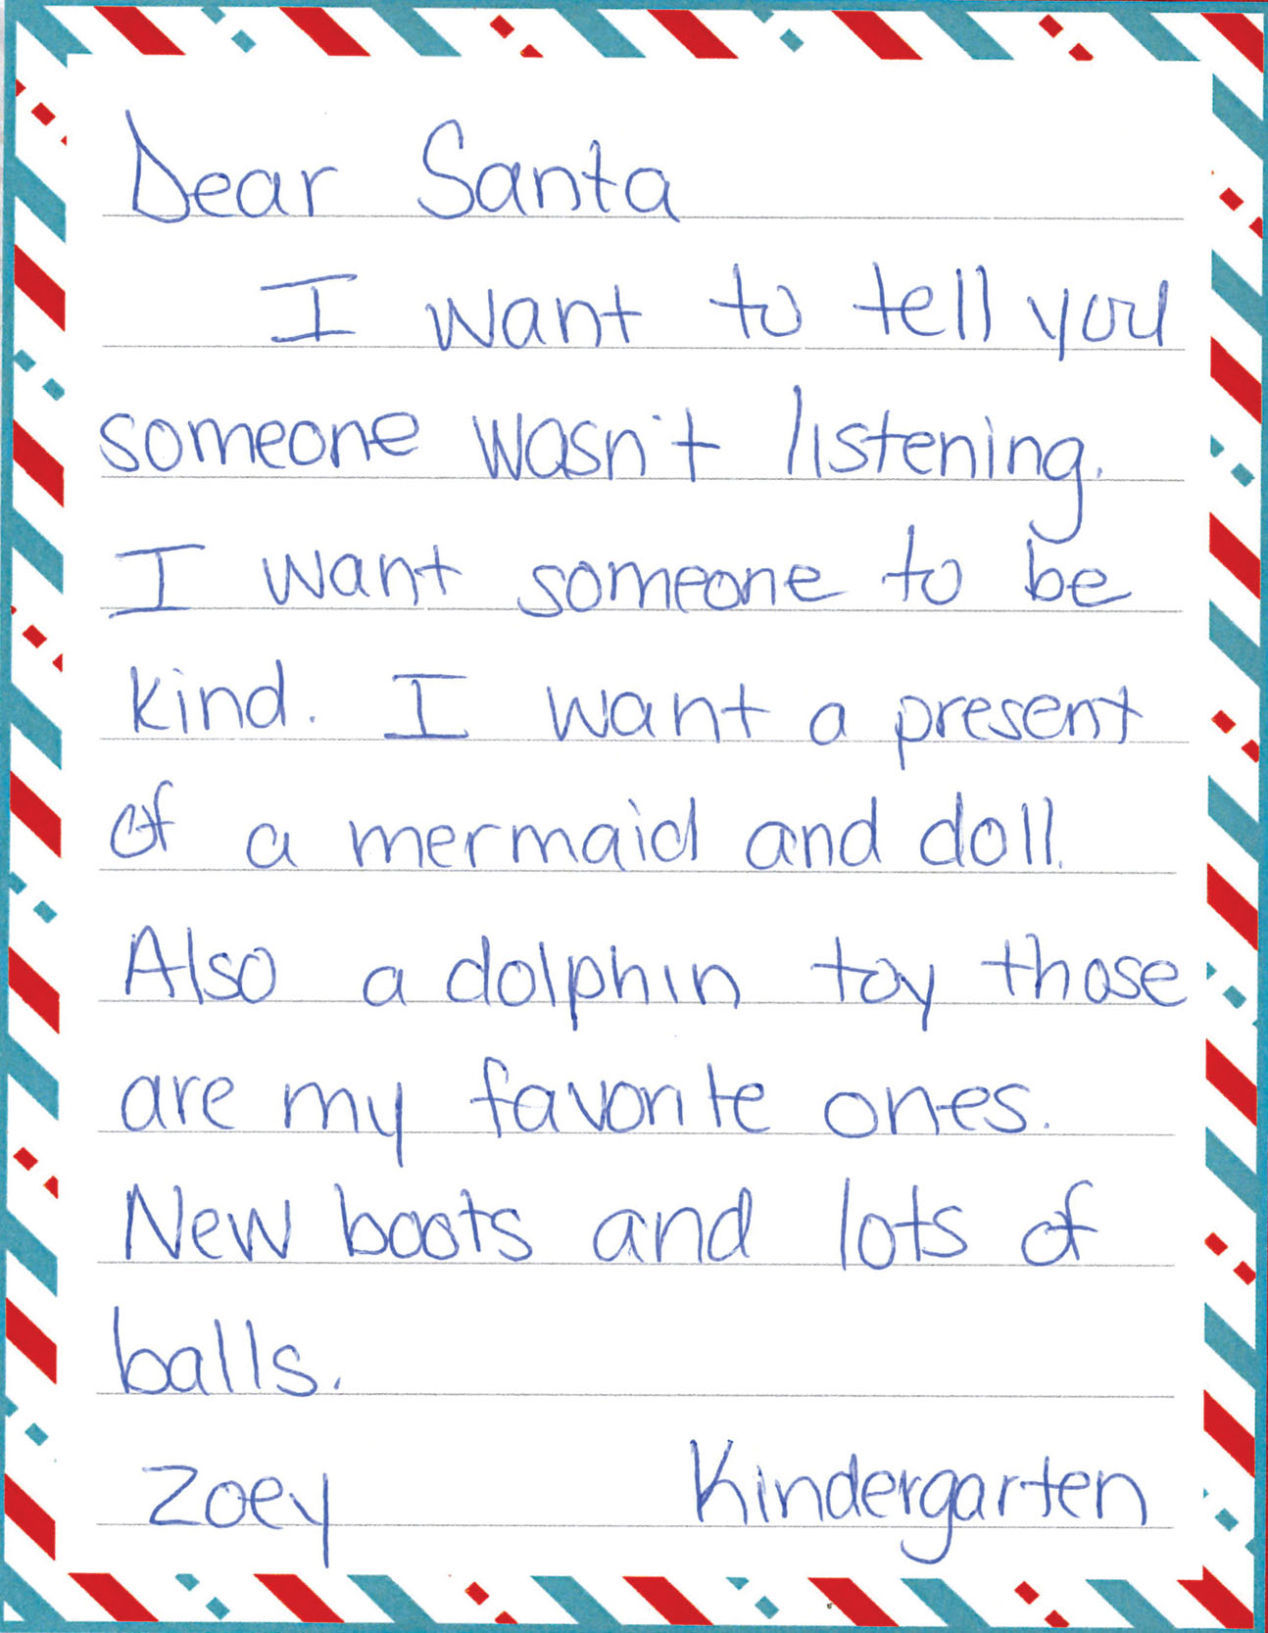 Dear Santa
I want to tell you
someone wasn't listening.
I want someone to be
kind. I want a present
of a mermaid and doll.
Also a dolphin toy those
are my favorite ones.
New boots and lots of
balls.
Zoey Kindergarten